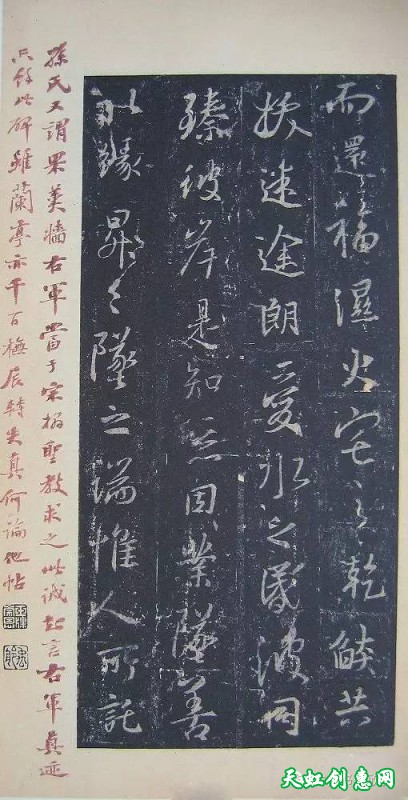 而還福濕火宅之乾燄共
拔迷途朗愛水之昏波同
臻彼岸是知惡因業墜善
以緣昇々墜之端惟人所託
孫氏又謂果羹牆右軍當于宋搨聖教求之此誠知言右軍真迹
只餘此碑雖蘭亭亦千百橅展轉失真何論他帖
天虹创惠网